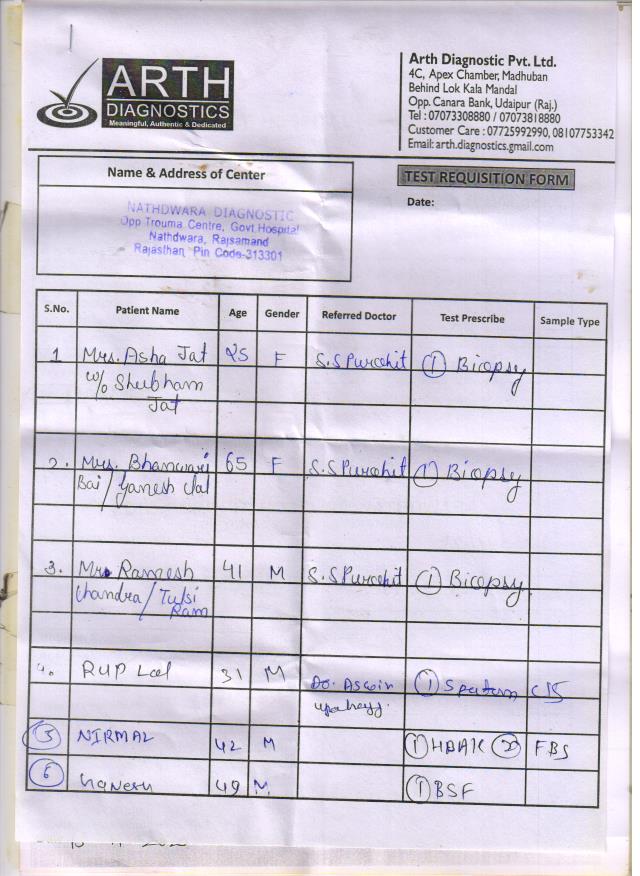 ARTH
DIAGNOSTICS
Meaningful, Authentic & Dedicated
Arth Diagnostic Pvt. Ltd.
4C, Apex Chamber, Madhuban
Behind Lok Kala Mandal
Opp. Canara Bank, Udaipur (Raj.)
Tel : 07073308880 / 07073818880
Customer Care : 07725992990, 08107753342
Email: arth.diagnostics.gmail.com
Name & Address of Center
NATHDWARA DIAGNOSTIC
Opp Trouma Centre, Govt Hospital
Nathdwara, Rajsamand
Rajasthan Pin Code-313301
TEST REQUISITION FORM
Date:
S.No. Patient Name Age Gender Referred Doctor Test Prescribe Sample Type
1 Mrs. Asha Jat 25 F S.S Purohit 1 Biopsy
w/o Shubham
Jat
2. Mrs. Bhanwari 65 F S.S Purohit 1 Biopsy
Bai / Ganesh Lal
3. Mr. Ramesh 41 M S.S Purohit 1 Biopsy
Chandra / Tulsi
Ram
4. RUP Lal 31 M Dr. Aswin 1 Sputum C/S
5 NIRMAL 42 M 1 2 FBS
6 Ganesh 49 M. 1 BSF